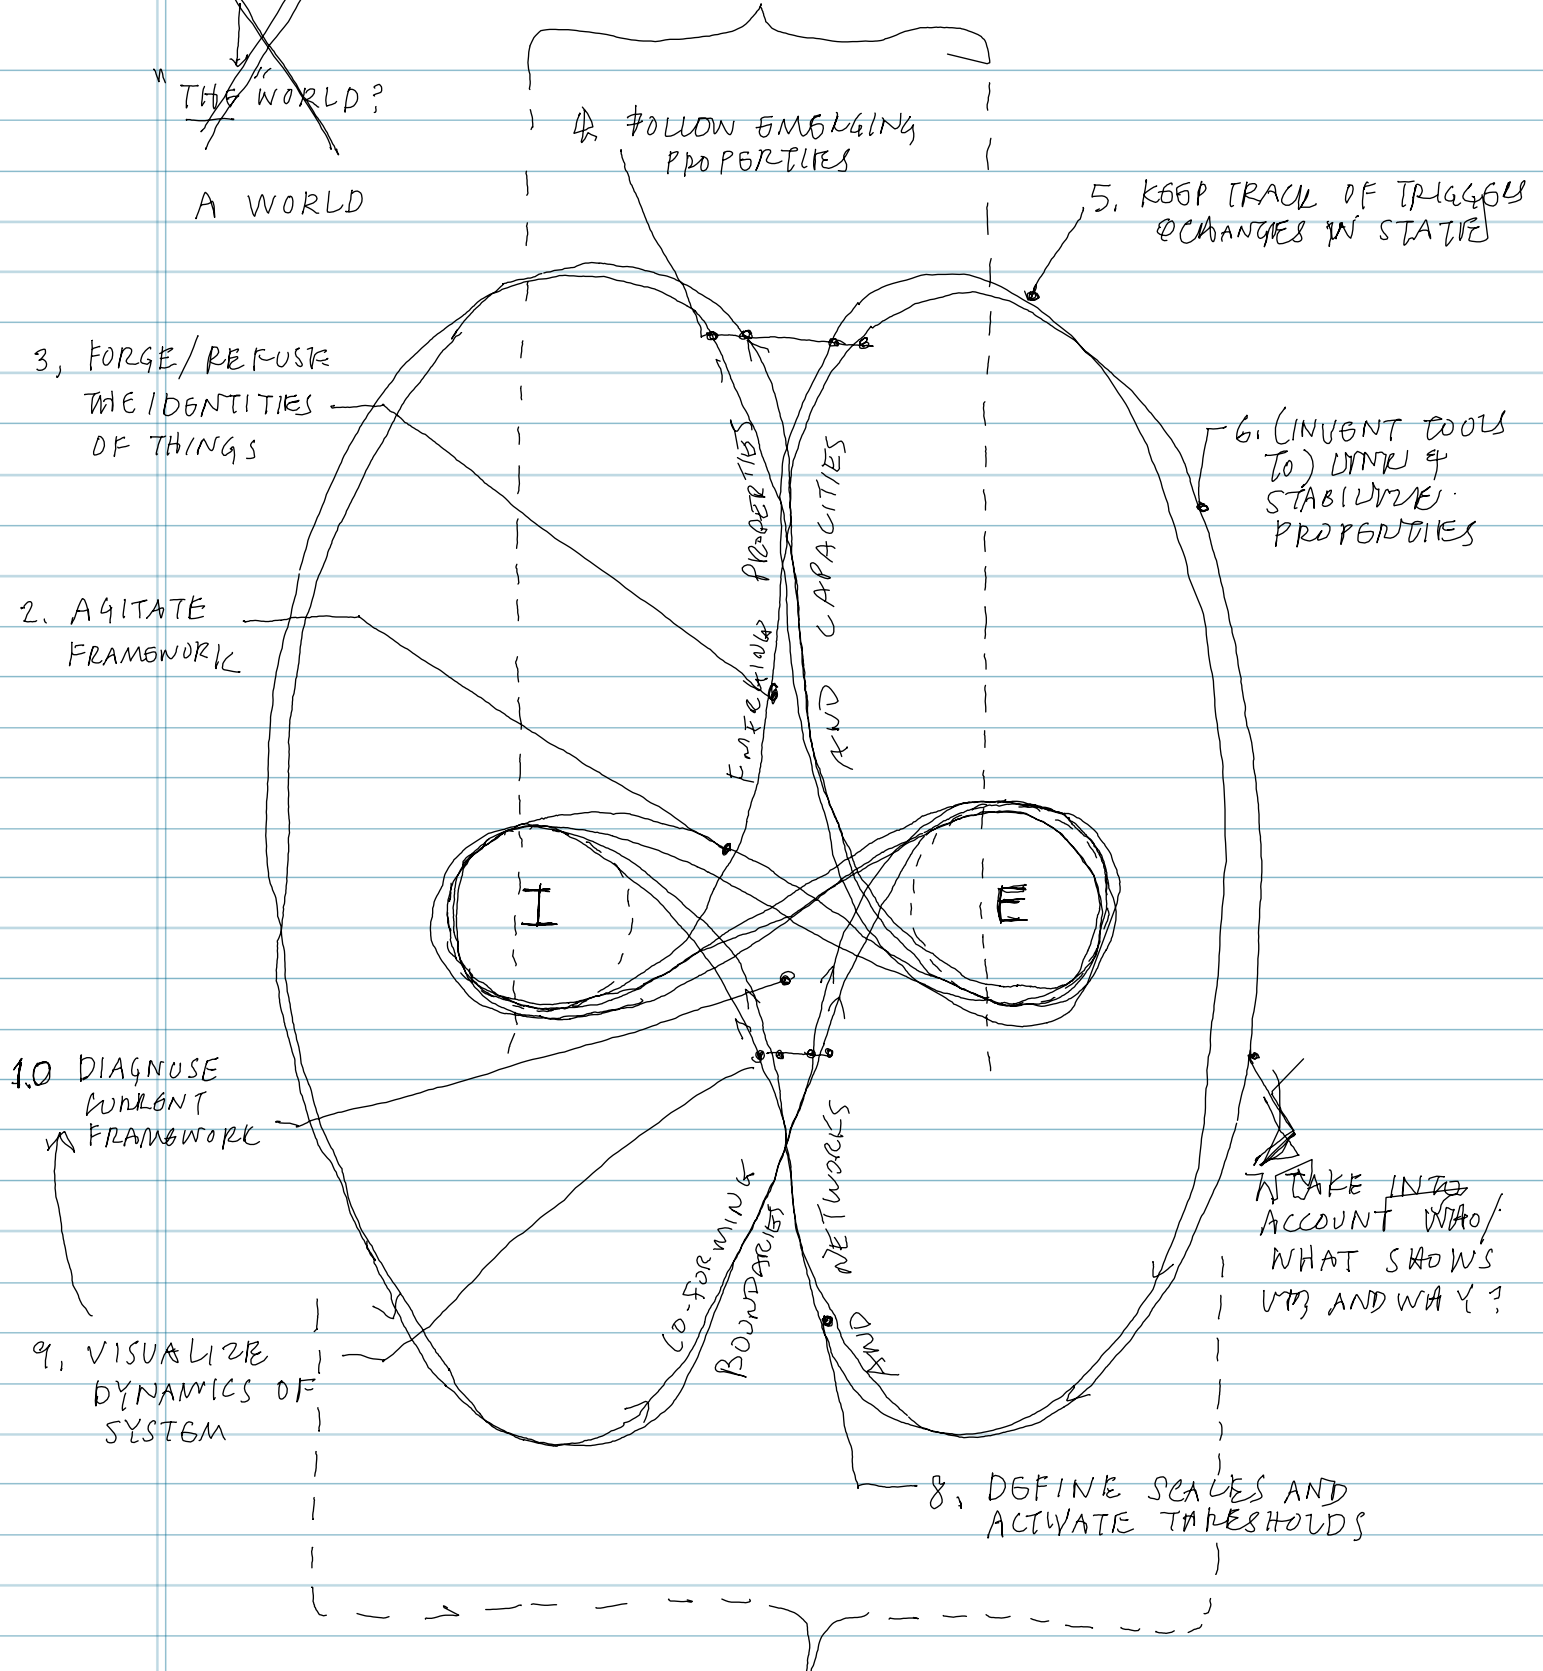 "THE" WORLD?
A WORLD
4. FOLLOW EMERGING
PROPERTIES
5. KEEP TRACK OF TRIGGERS
& CHANGES IN STATE
3, FORGE/REFUSE
THE IDENTITIES
OF THINGS
6. (INVENT TOOLS
TO) LINK &
STABILIZE
PROPERTIES
2. AGITATE
FRAMEWORK
EMERGING PROPERTIES
AND CAPACITIES
I
E
1.0 DIAGNOSE
CURRENT
FRAMEWORK
CO-FORMING
BOUNDARIES
AND NETWORKS
7 TAKE INTO
ACCOUNT WHO/
WHAT SHOWS
UP AND WHY?
9, VISUALIZE
DYNAMICS OF
SYSTEM
8, DEFINE SCALES AND
ACTIVATE THRESHOLDS